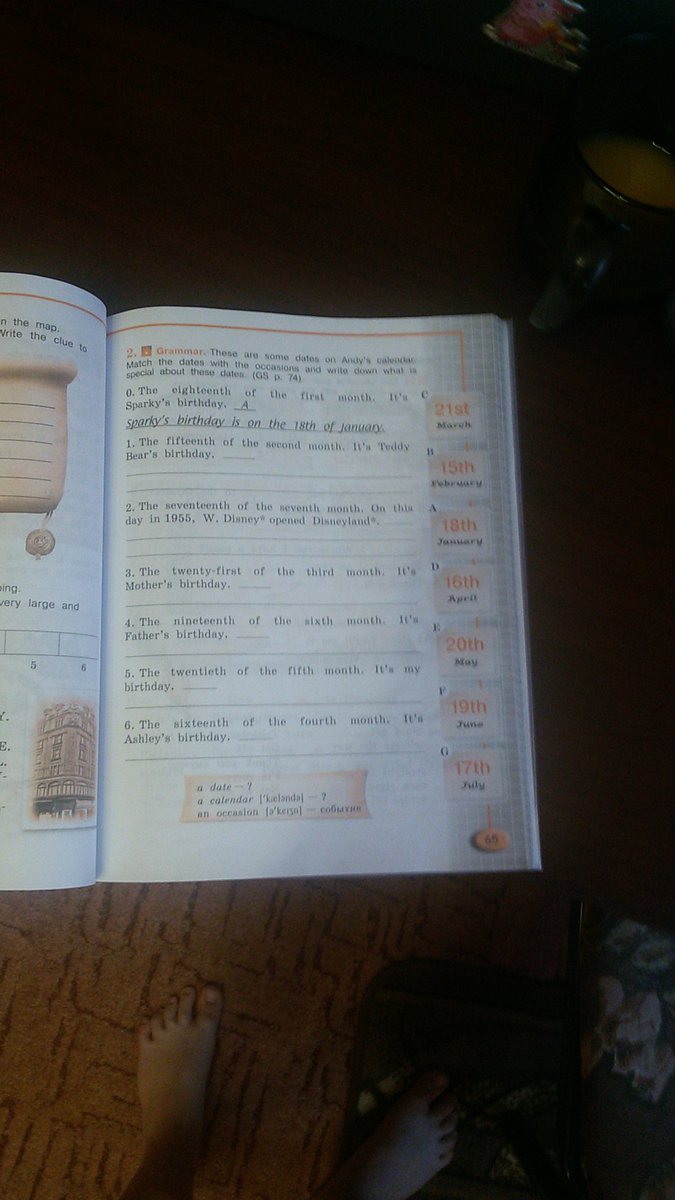 n the map.
Write the clue to
ping.
very large and
5 6
Y.
E.
2. Grammar. These are some dates on Andy's calendar.
Match the dates with the occasions and write down what is
special about these dates. (GS p. 74)
0. The eighteenth of the first month. It's
Sparky's birthday. A
Sparky's birthday is on the 18th of January.
1. The fifteenth of the second month. It's Teddy
Bear's birthday.
2. The seventeenth of the seventh month. On this
day in 1955, W. Disney* opened Disneyland*.
3. The twenty-first of the third month. It's
Mother's birthday.
4. The nineteenth of the sixth month. It's
Father's birthday.
5. The twentieth of the fifth month. It's my
birthday.
6. The sixteenth of the fourth month. It's
Ashley's birthday.
a date — ?
a calendar [ˈkæləndə] — ?
an occasion [əˈkeɪʒn] — событие
C
21st
March
B
15th
February
A
18th
January
D
16th
April
E
20th
May
F
19th
June
G
17th
July
65